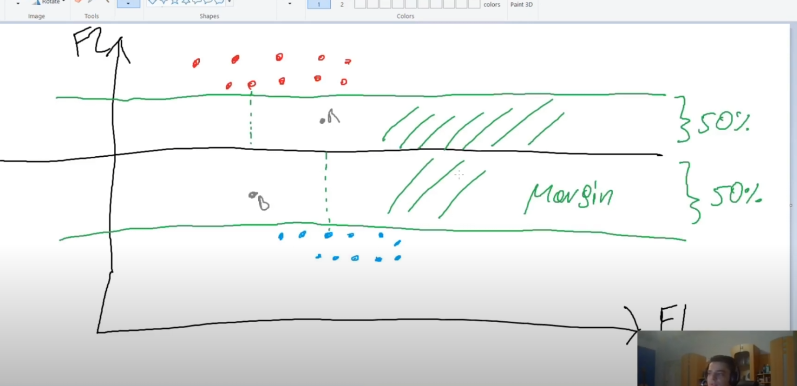 Rotate
Image
Tools
Shapes
1
2
Colors
colors
Paint 3D
F2
A
50%
B
Margin
50%
F1